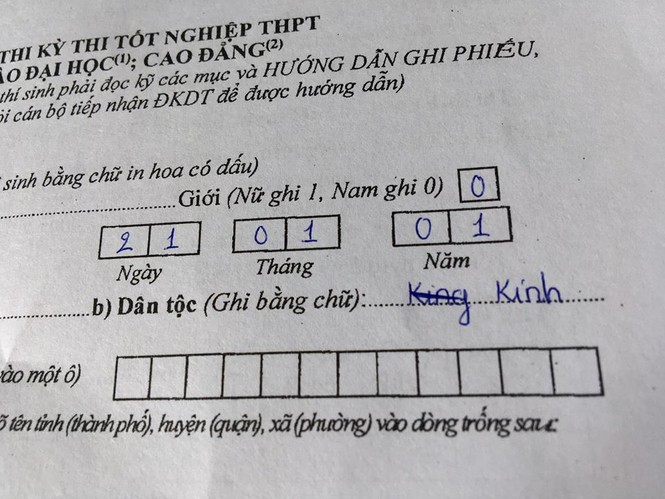 THI KỲ THI TỐT NGHIỆP THPT
ÀO ĐẠI HỌC(1); CAO ĐẲNG(2)
thí sinh phải đọc kỹ các mục và HƯỚNG DẪN GHI PHIẾU,
ỏi cán bộ tiếp nhận ĐKDT để được hướng dẫn)
sinh bằng chữ in hoa có dấu)
Giới (Nữ ghi 1, Nam ghi 0) 0
2 1 0 1 0 1
Ngày Tháng Năm
b) Dân tộc (Ghi bằng chữ): King Kinh
vào một ô)
õ tên tỉnh (thành phố), huyện (quận), xã (phường) vào dòng trống sau: